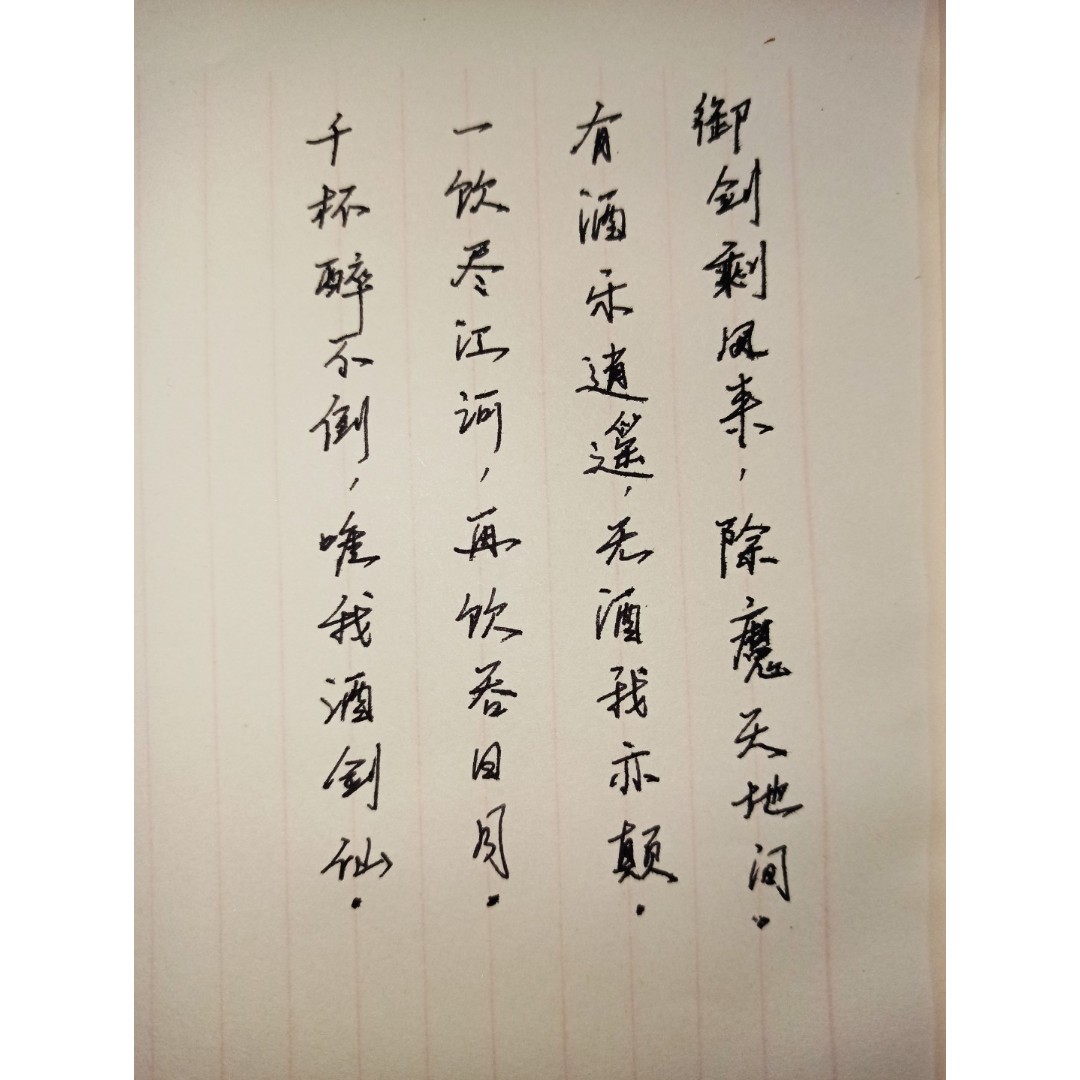 御剑剩风来，除魔天地间。
有酒乐逍遥，无酒我亦颠。
一饮尽江河，再饮吞日月。
千杯醉不倒，唯我酒剑仙。